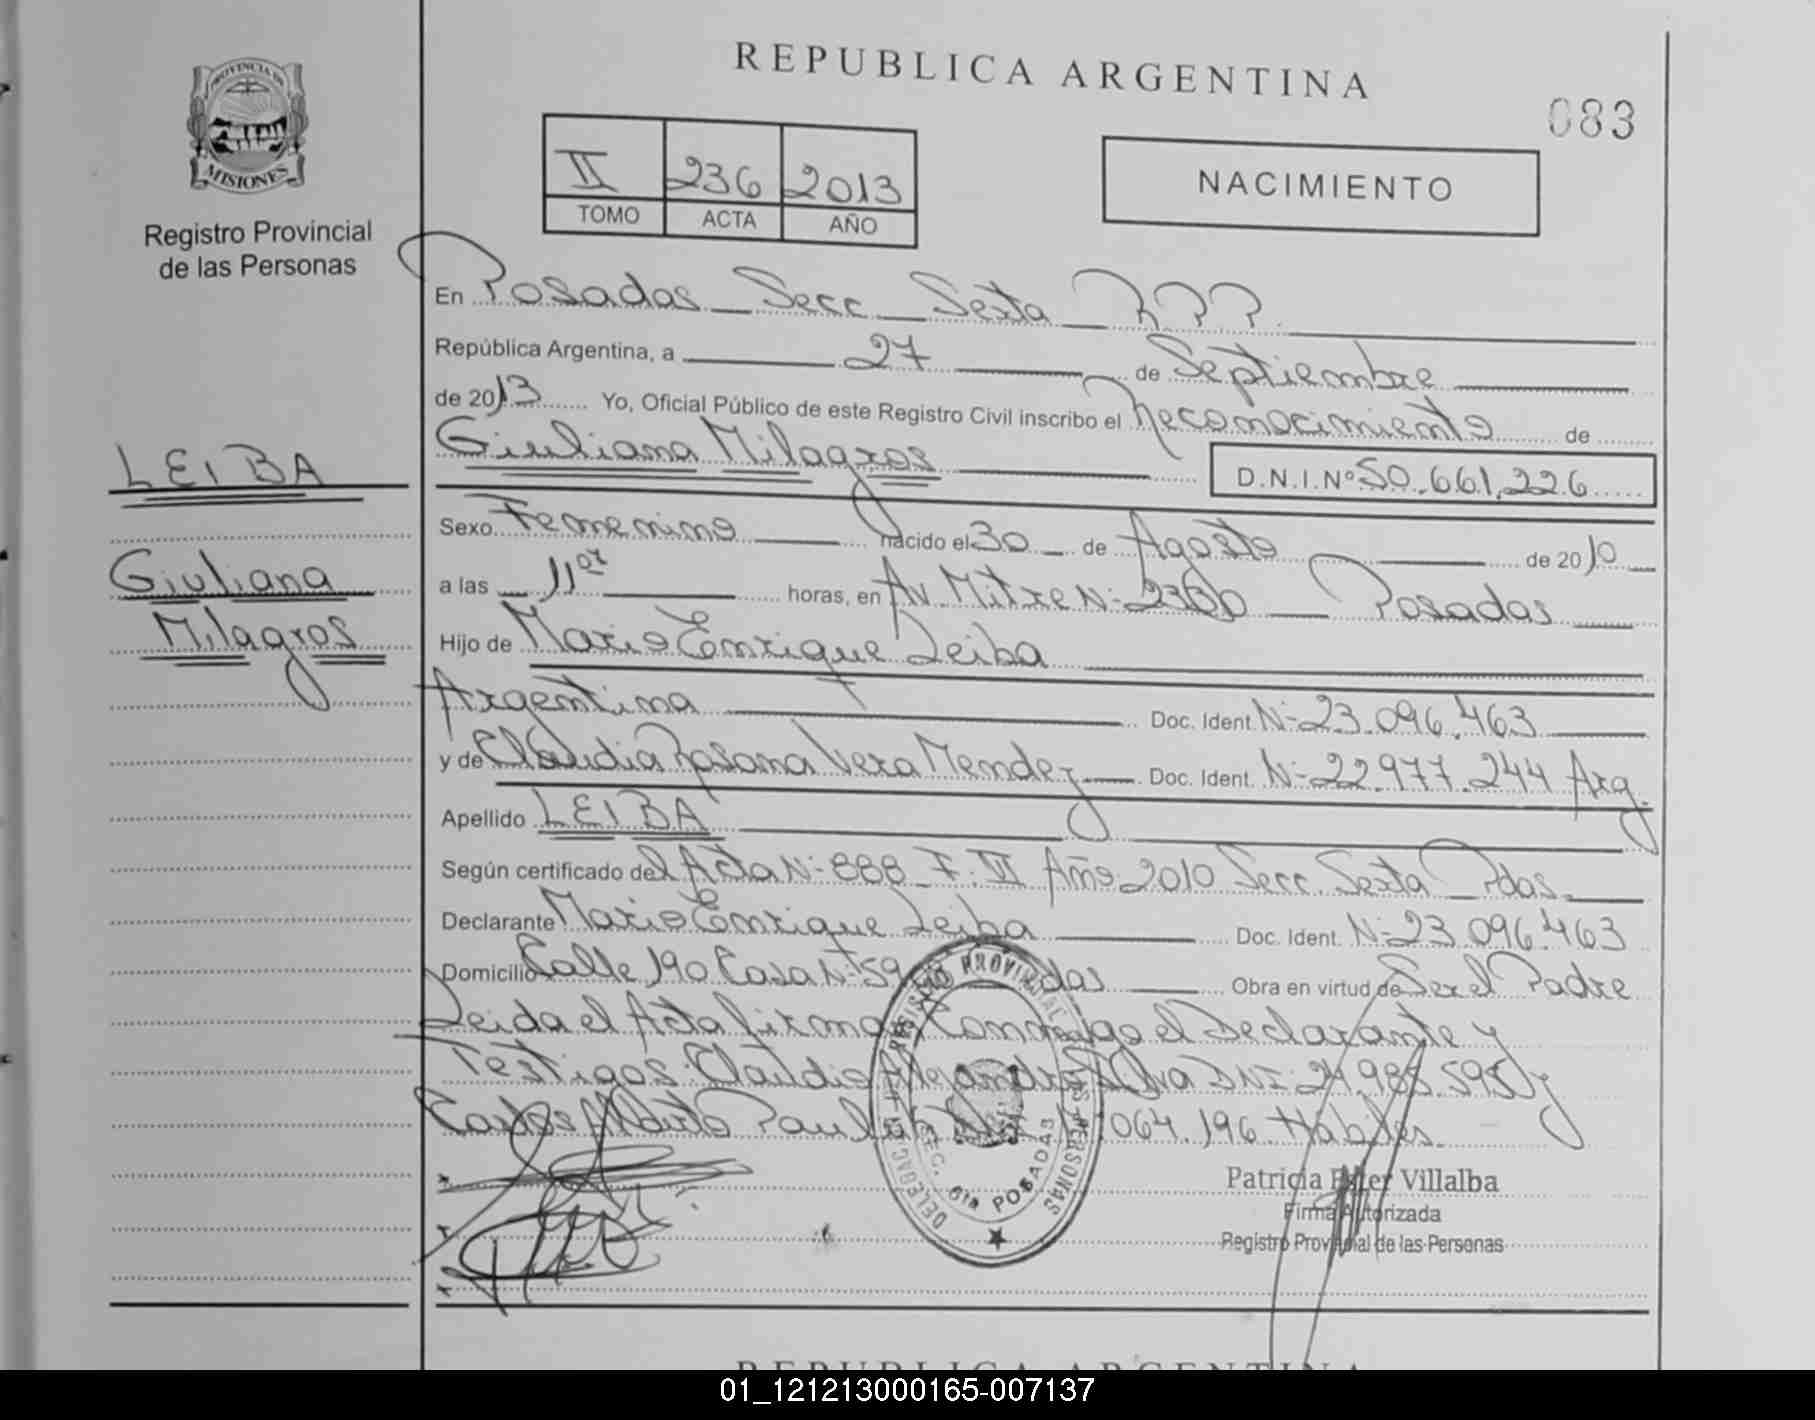 REPUBLICA ARGENTINA
083
PROVINCIA DE
MISIONES
Registro Provincial
de las Personas
II 236 2013
TOMO ACTA AÑO
NACIMIENTO
En Posadas Secc Sexta R.P.P.
República Argentina, a 27 de Septiembre
de 2013 Yo, Oficial Público de este Registro Civil inscribo el Reconocimiento de
Giuliana Milagros D.N.I.Nº 50.661.226
LEIBA
Giuliana
Milagros
Sexo Femenino nacido el 30 de Agosto de 2010
a las 11 horas, en Av. Mitre Nº Posadas
Hijo de Mario Enrique Leiba
Argentina Doc. Ident. Nº 23.096.463
y de Claudia Rosana Vera Mendez Doc. Ident. Nº 22.977.244 Arg.
Apellido LEIBA
Según certificado del Acta Nº 888 T. Año 2010 Secc. Sexta Pdas.
Declarante Mario Enrique Leiba Doc. Ident. Nº 23.096.463
Domicilio Calle 190 Casa Nº 59 Obra en virtud de Ser el Padre
Leida el Acta firman Conmigo el Declarante y
Testigos: Claudio Alejandro DNI: y
Carlos Alberto 064.196 Hábiles.
REGISTRO PROVINCIAL DE LAS PERSONAS
DELEGACION
SEC. 6ta POSADAS
Patricia Ester Villalba
Firma Autorizada
Registro Provincial de las Personas
REPUBLICA ARGENTINA
01_121213000165-007137